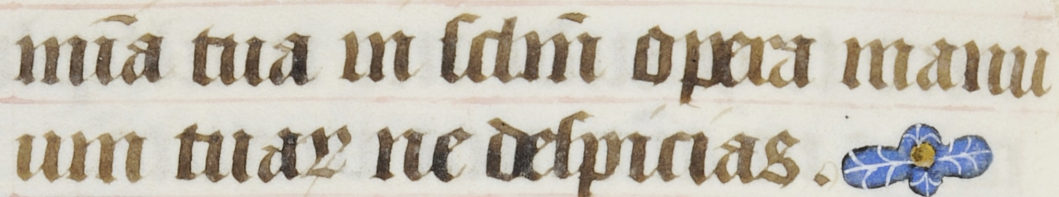 mīa tua in sclm̄ opera manu
um tuaꝝ ne despicias.